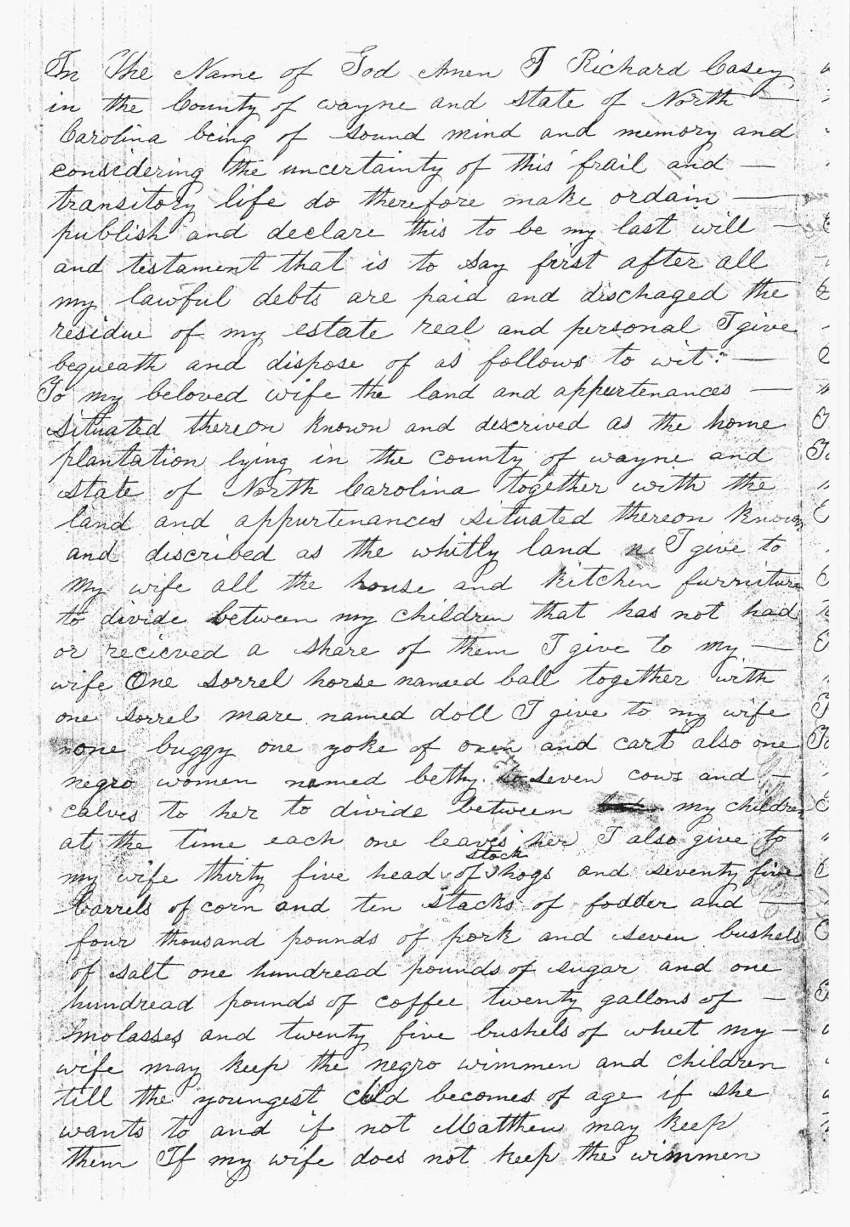 In The Name of God Amen I Richard Casey
in the County of wayne and state of North —
Carolina being of sound mind and memory and
considering the uncertainty of this frail and —
transitory life do therefore make ordain —
publish and declare this to be my last will —
and testament that is to say first after all
my lawful debts are paid and dischaged the
residue of my estate real and personal I give
bequeath and dispose of as follows to wit: —
To my beloved wife the land and appurtenances —
situated thereon known and descrived as the home
plantation lying in the county of wayne and
state of North Carolina together with the
land and appurtenances situated thereon known
and discribed as the whitly land I give to
my wife all the house and kitchen furniture
to divide between my children that has not had
or recieved a share of them I give to my —
wife One sorrel horse named ball together with
one sorrel mare named doll I give to my wife
one buggy one yoke of oxen and cart also one
negro women named bethy seven cows and —
calves to her to divide between my children
at the time each one leaves her I also give to
my wife thirty five head of stock hogs and seventy five
barrels of corn and ten stacks of fodder and —
four thousand pounds of pork and seven bushels
of salt one hundread pounds of sugar and one
hundread pounds of coffee twenty gallons of —
molasses and twenty five bushels of wheet my —
wife may keep the negro wimmen and children
till the youngest child becomes of age if she
wants to and if not Matthew may keep
them If my wife does not keep the wimmen